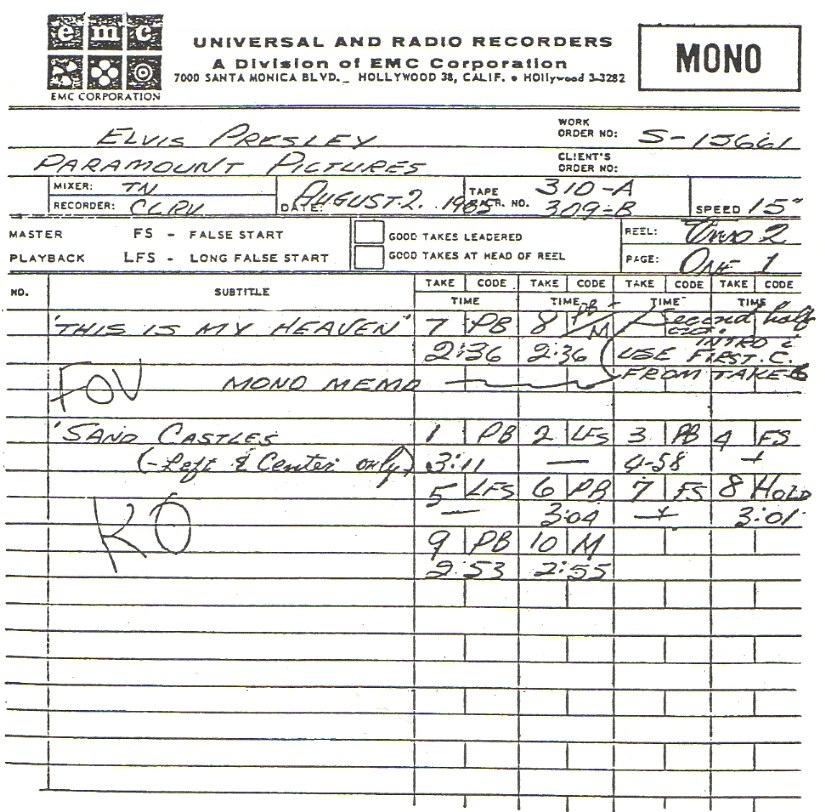 emc
EMC CORPORATION
UNIVERSAL AND RADIO RECORDERS
A Division of EMC Corporation
7000 SANTA MONICA BLVD._ HOLLYWOOD 38, CALIF. • HOllywood 3-3282
MONO
ELVIS PRESLEY WORK ORDER NO: S-15661
PARAMOUNT PICTURES CLIENT'S ORDER NO:
MIXER: TN
RECORDER: CLRV
DATE: AUGUST 2. 1965
TAPE NO. 310-A
309-B
SPEED 15"
MASTER FS - FALSE START GOOD TAKES LEADERED REEL: TWO 2
PLAYBACK LFS - LONG FALSE START GOOD TAKES AT HEAD OF REEL PAGE: ONE 1
NO. SUBTITLE TAKE CODE TAKE CODE TAKE CODE TAKE CODE
TIME TIME TIME TIME
'THIS IS MY HEAVEN' 7 PB 8 PB/M Second half
2:36 2:36 INTRO &
USE FIRST C.
FOV MONO MEMO FROM TAKE-6
'SAND CASTLES 1 PB 2 LFS 3 PB 4 FS
(-Left & Center only) 3:11 — 4-58 +
5 LFS 6 PB 7 FS 8 HOLD
— 3:04 + 3:01
KO
9 PB 10 M
2:53 2:55